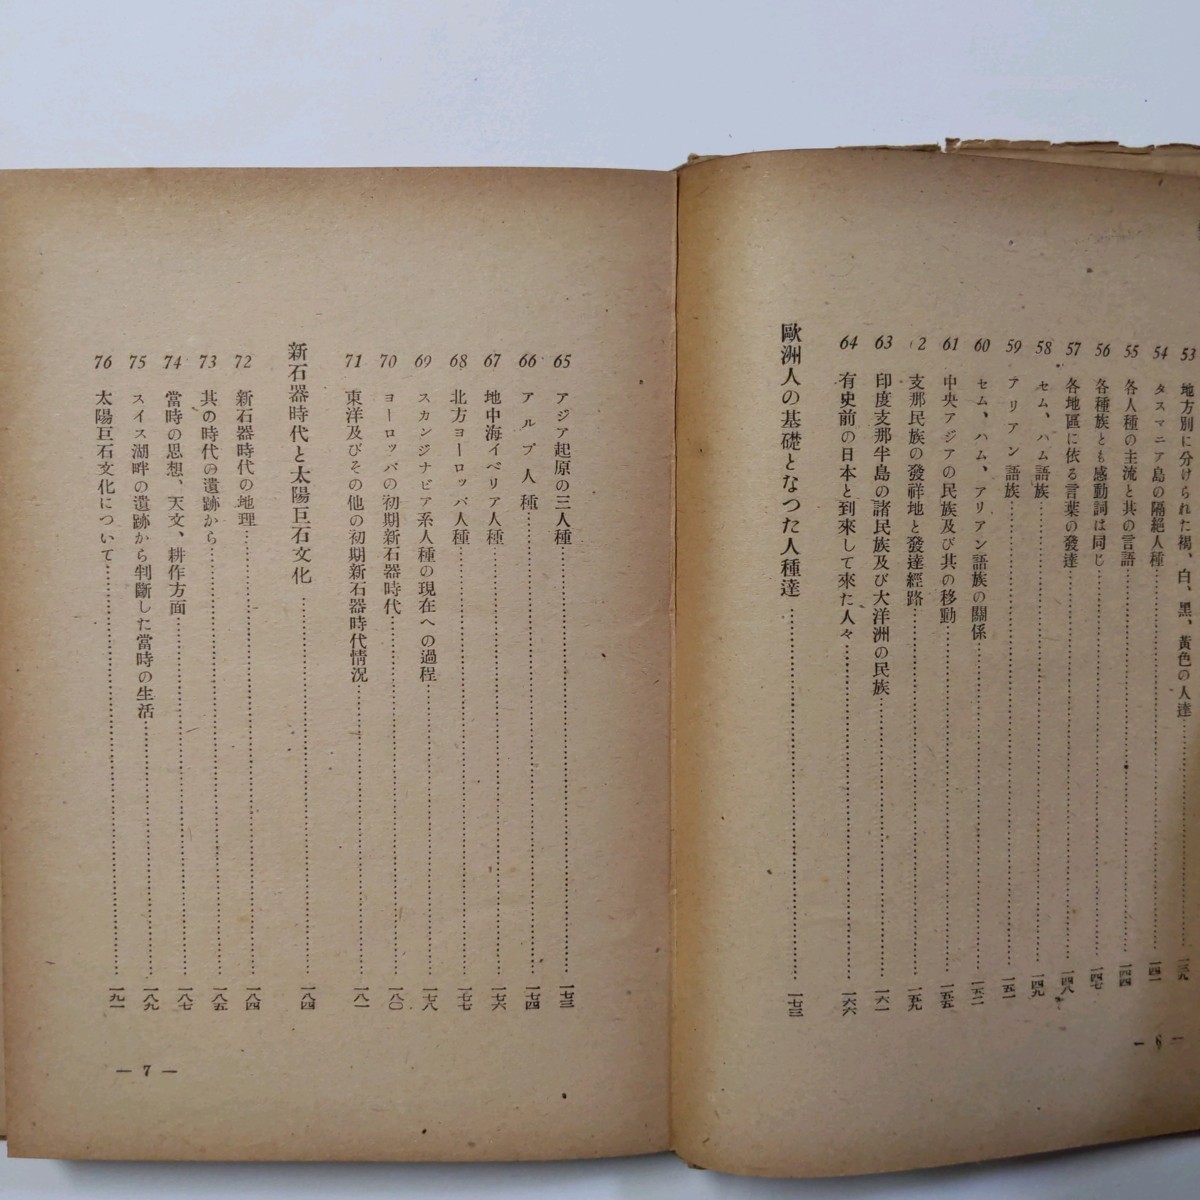 53 地方別に分けられた褐、白、黑、黃色の人達……一三九
54 タスマニア島の隔絕人種……一四一
55 各人種の主流と其の言語……一四四
56 各種族とも感動詞は同じ……一四七
57 各地區に依る言葉の發達……一四八
58 セム、ハム語族……一四九
59 アリアン語族……一五一
60 セム、ハム、アリアン語族の關係……一五二
61 中央アジアの民族及び其の移動……一五五
2 支那民族の發祥地と發達經路……一五九
63 印度支那半島の諸民族及び大洋洲の民族……一六一
64 有史前の日本と到來して來た人々……一六六
歐洲人の基礎となつた人種達……一七三
— 6 —
65 アジア起原の三人種……一七三
66 アルプ人種……一七四
67 地中海イベリア人種……一七六
68 北方ヨーロッパ人種……一七七
69 スカンジナビア系人種の現在への過程……一七八
70 ヨーロッパの初期新石器時代……一八〇
71 東洋及びその他の初期新石器時代情況……一八一
新石器時代と太陽巨石文化……一八四
72 新石器時代の地理……一八四
73 其の時代の遺跡から……一八五
74 當時の思想、天文、耕作方面……一八七
75 スイス湖畔の遺跡から判斷した當時の生活……一八九
76 太陽巨石文化について……一九一
— 7 —